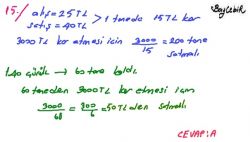 15-) alış=25TL > 1 tanede 15TL kar
satış=40TL
3000TL kar etmesi için 3000/15 = 200 tane satmalı
140 çürük → 60 tane kaldı
60 taneden 3000TL kar etmesi için
3000/60 = 300/6 = 50TL den satmalı
CEVAP: A